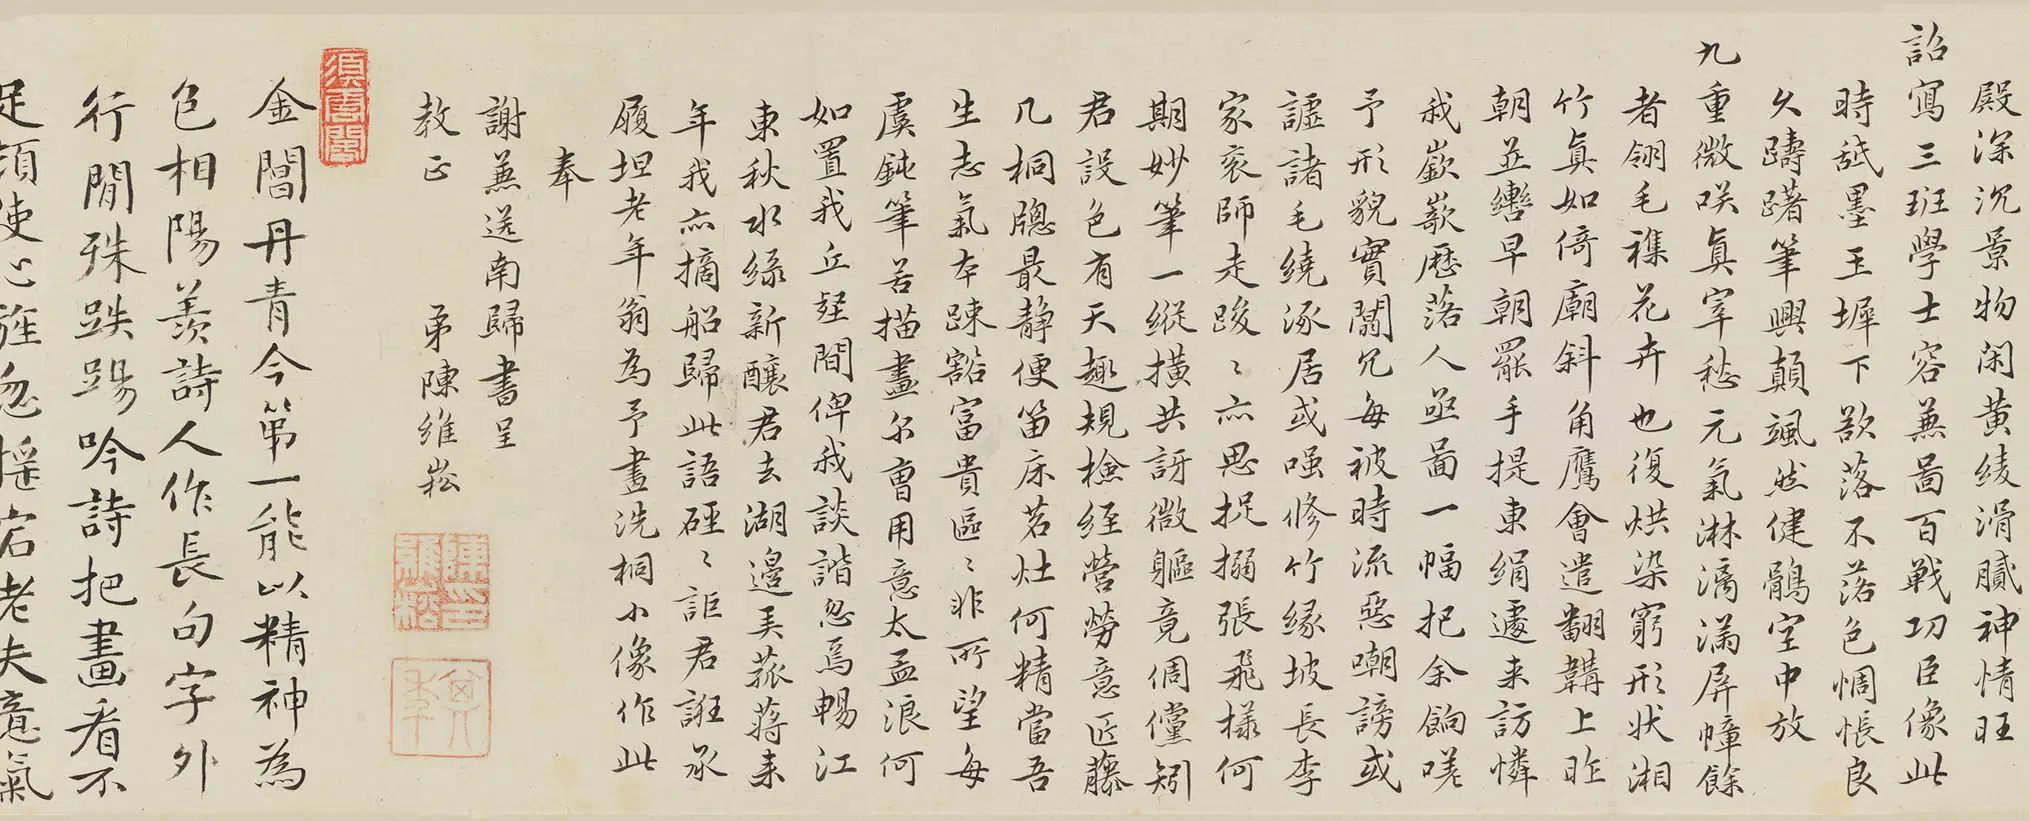 殿深沉景物閑黃綾滑膩神情旺
詔寫三班學士容兼啚百戰功臣像此
時舐墨玉墀下欲落不落色惆悵良
久躊躇筆興顛颯然健鶻空中放
九重微咲真宰愁元氣淋漓滿屏幛餘
者翎毛襍花卉也復烘染窮形狀湘
竹真如倚廟斜角鷹會遣翻韝上昨
朝並轡早朝罷手提東絹遽来訪憐
我嶔嶔歷落人亟啚一幅把余餉嗟
予形貌實闒冗每被時流惡嘲謗或
謔諸毛繞涿居或嗤修竹緣坡長李
家袞師走踆〻亦思捉搦張飛樣何
期妙筆一縱橫共訝微軀竟倜儻矧
君設色有天趣規撿經營勞意匠藤
几桐牕最靜便笛床茗灶何精當吾
生志氣本疎豁富貴區〻非所望每
虞鈍筆苦描畫尔曹用意太孟浪何
如置我丘壑間俾我談諧忽焉暢江
東秋水綠新釀君去湖邊美菰蔣来
年我亦摘船歸此語硜〻詎君誑承
履坦老年翁為予畫洗桐小像作此
奉
謝兼送南歸書呈
教正
弟陳維崧
須雲閣
陳維崧印
其年
金閶丹青今第一能以精神為
色相陽羨詩人作長句字外
行間殊跌踢吟詩把畫看不
足須使心旌忽搖宕老夫意氣